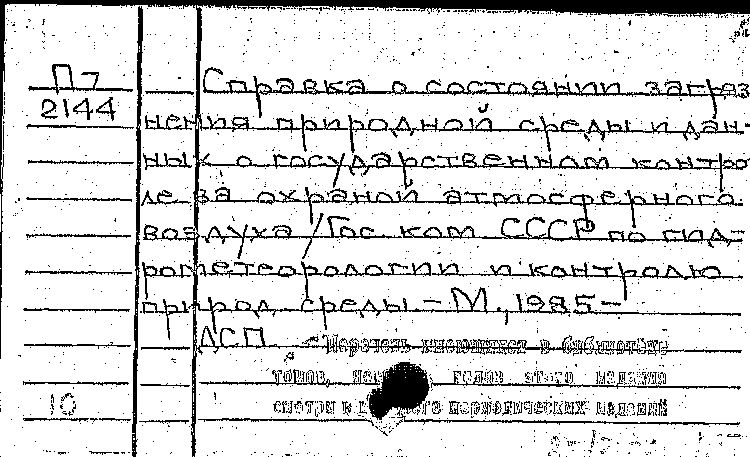 П7
2144
Справка о состоянии загряз
нения природной среды и дан-
ных о государственном контро
ле за охраной атмосферного
воздуха /Гос. ком. СССР по гид-
рометеорологии и контролю
природ. среды – М., 1985 –
ДСП
Перечень имеющихся в библиотеке
томов, годов этого издания
смотри в периодических изданий
10